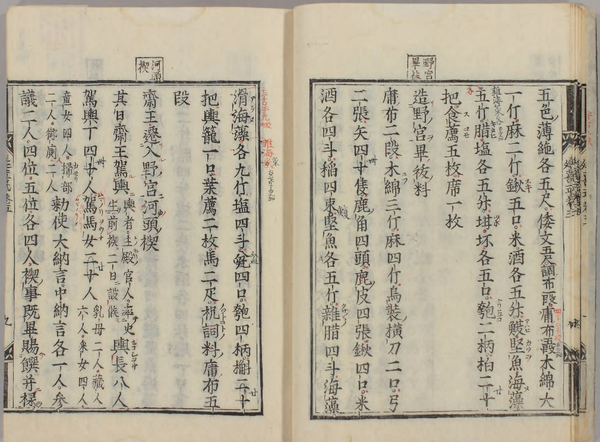 野宮畢祓
五色薄絁各五尺倭文五尺調布一段庸布二段木綿大
一斤麻二斤鍬五口米酒各五升鰒堅魚海藻各
五斤腊塩各五升坩坏各五口匏二柄柏二十
把食薦五枚席一枚
造野宮畢祓料
庸布二段木綿三斤麻四斤烏装横刀二口弓
二張矢四十隻鹿角四頭鹿皮四張鍬四口米
酒各四斗稲四束堅魚各五斤雜腊四斗海藻
河頭禊
滑海藻各九斤塩四斗瓮四口匏四柄槲二十
把輿籠一口葉薦二枚馬二疋祝詞料庸布五
段
齋王遷入野宮河頭禊
其日齋王駕輿輿者主殿官人率史生前祓二日設儀輿長八人
駕輿丁四十人駕馬女二十人乳母二人蔵人六人采女四人
童女四人掃部二人御厠二人勅使大納言中納言各一人参
議二人四位五位各四人禊事既畢賜饌并禄